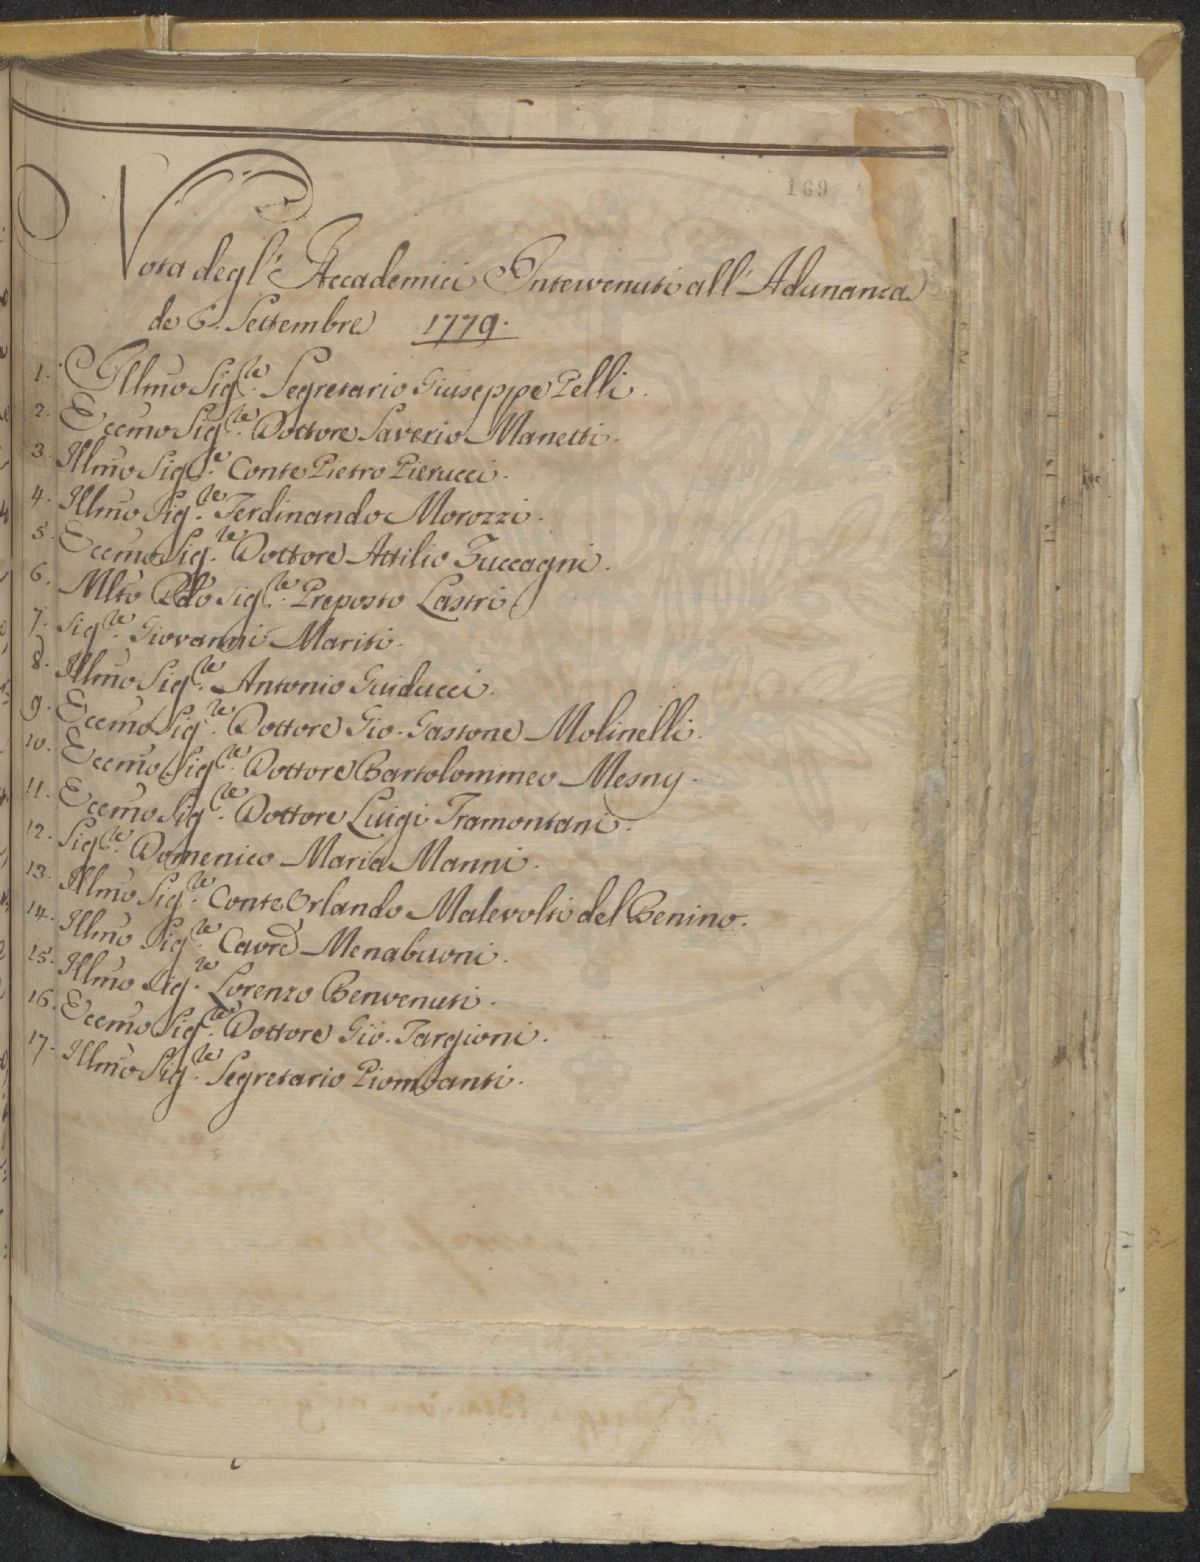 169
Nota degl'Accademici Intervenuti all'Adunanza
de 6. Settembre 1779.
1. Illmo Sigre. Segretario Giuseppe Pelli.
2. Eccmo Sigre. Dottore Saverio Manetti.
3. Illmo Sigre. Conte Pietro Pierucci.
4. Illmo Sigre. Ferdinando Morozzi.
5. Eccmo Sigre. Dottore Attilio Zuccagni.
6. Mlto Rdo Sigre. Preposto Lastri
7. Sigre. Giovanni Mariti.
8. Illmo Sigre. Antonio Guiducci.
9. Eccmo Sigre. Dottore Gio. Gastone Molinelli.
10. Eccmo Sigre. Dottore Bartolommeo Mesny.
11. Eccmo Sigre. Dottore Luigi Tramontani.
12. Sigre. Domenico Maria Manni.
13. Illmo Sigre. Conte Orlando Malevolti del Benino.
14. Illmo Sigre. Cavre Menabuoni.
15. Illmo Sigre. Lorenzo Benvenuti.
16. Eccmo Sigre. Dottore Gio. Targioni.
17. Illmo Sigre. Segretario Piombanti.